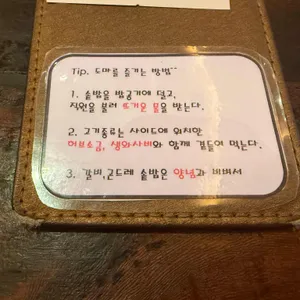 Tip. 도마를 즐기는 방법^^
1. 솥밥을 밥공기에 덜고,
직원을 불러 뜨거운 물을 받는다.
2. 고기종류는 사이드에 위치한
허브소금, 생와사비와 함께 곁들여 먹는다.
3. 갈비,곤드레 솥밥은 양념과 비벼서